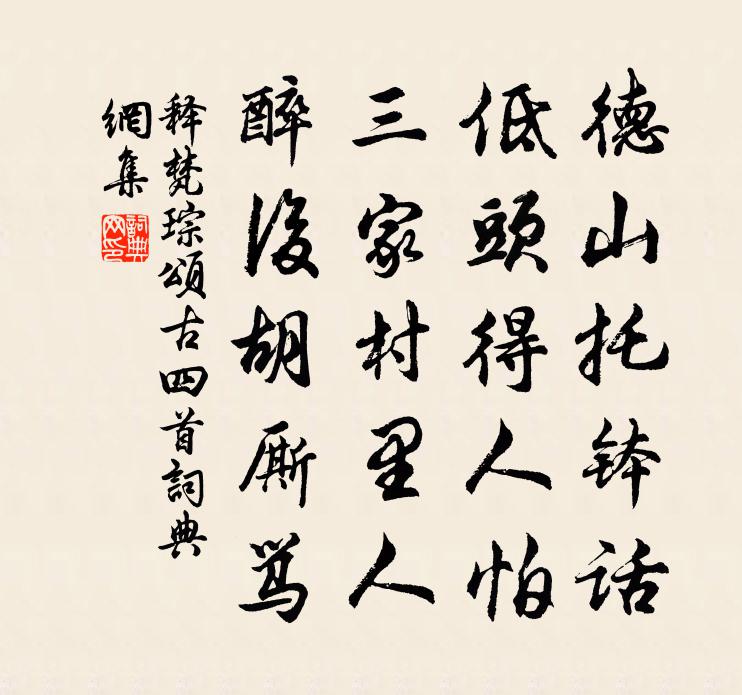 德山托钵话
低頭得人怕
三家村里人
醉後胡厮骂
释梵琮頌古四首詞典
網集
詞典網印